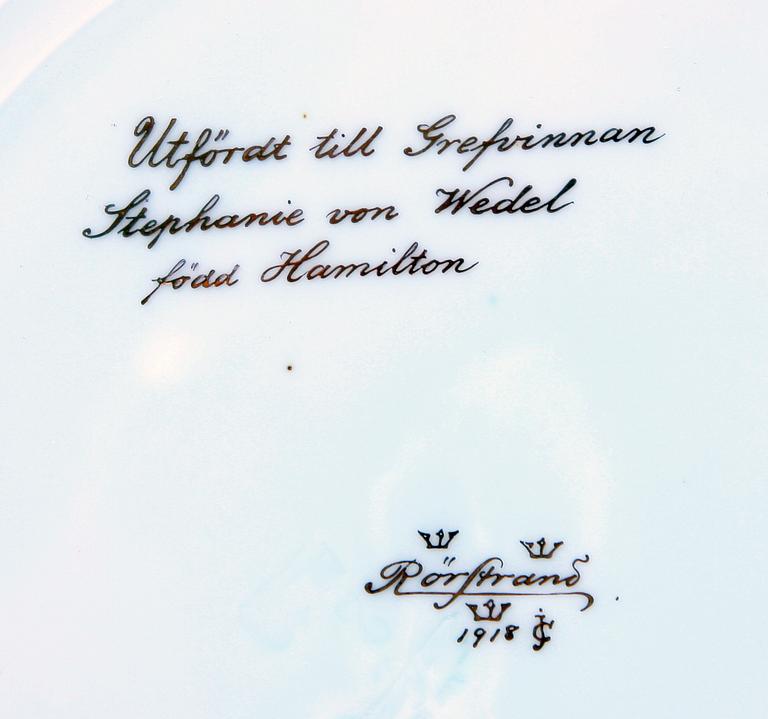 Utfördt till Grefvinnan
Stephanie von Wedel
född Hamilton
Rörstrand
1918